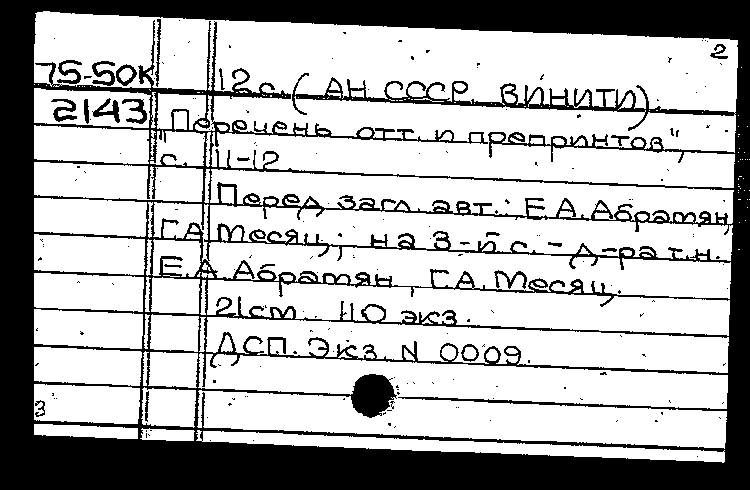 2
75-50К 12 с. (АН СССР. ВИНИТИ).
2143 "Перечень отт. и препринтов",
с. 11-12.
Перед загл. авт.: Е.А.Абрамян,
Г.А.Месяц; на 3-й с. - д-ра т.н.
Е.А.Абрамян, Г.А.Месяц.
21см. 110 экз.
ДСП. Экз. N 0009.
3